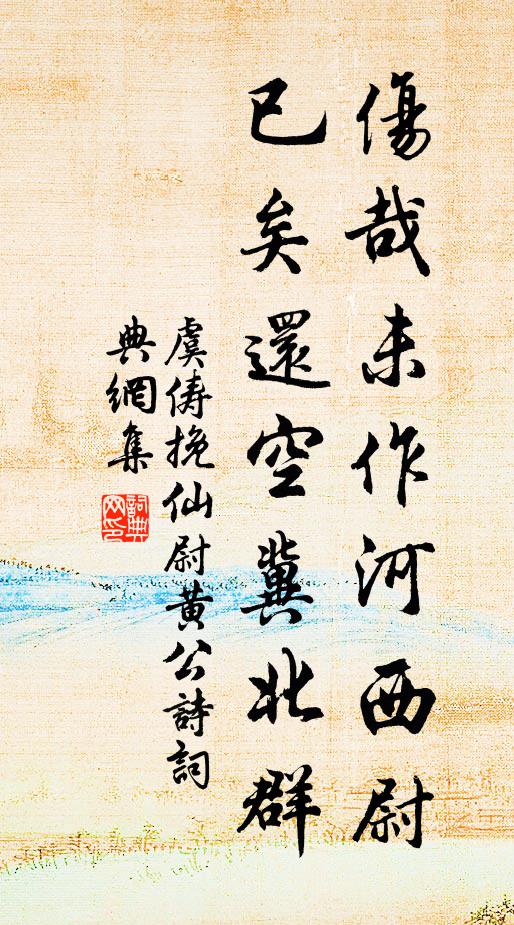 傷哉未作河西尉
已矣還空冀北群
虞儔挽仙尉黃公詩詞
典網集
詞典網印